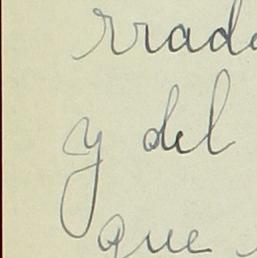 rrado
y del
que